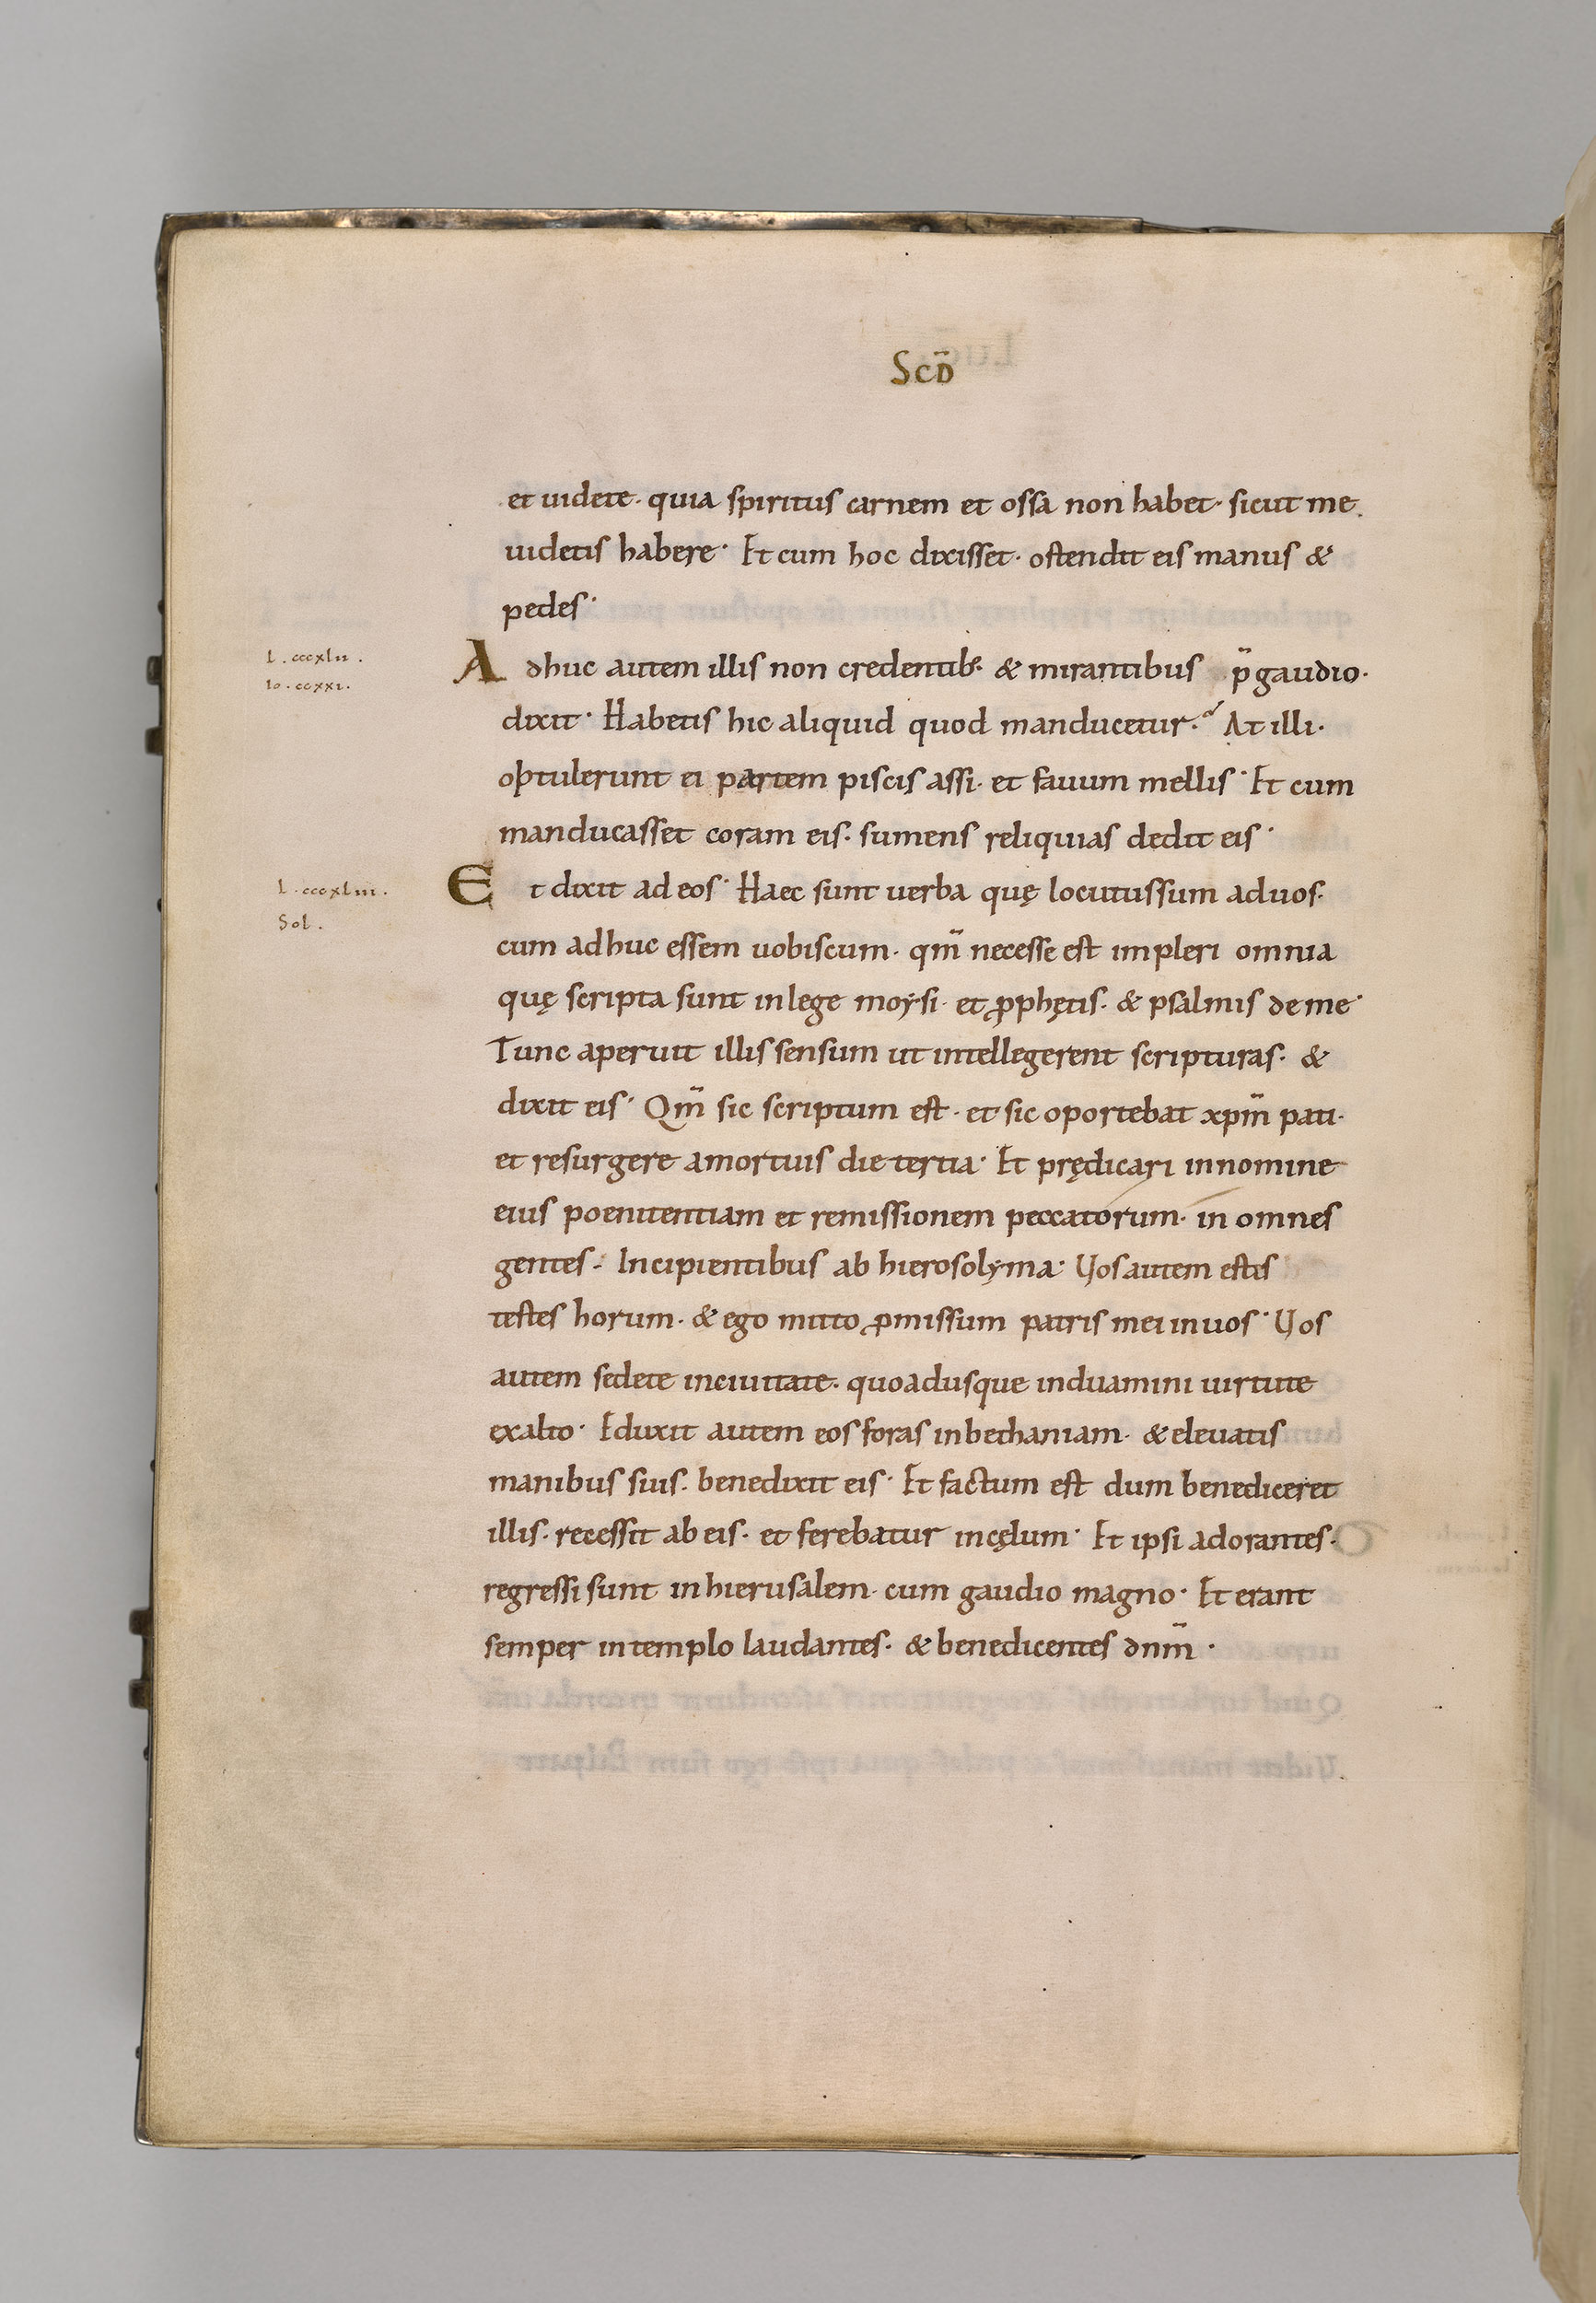 Scd̄
et uidete· quia spiritus carnem et ossa non habet· sicut me
uidetis habere· Et cum hoc dixisset· ostendit eis manus &
pedes·
L. cccxlii.
Io. ccxxi.
Adhuc autem illis non credentib; & mirantibus p̄ gaudio·
dixit· Habetis hic aliquid quod manducetur? At illi·
optulerunt ei partem piscis assi· et fauum mellis· Et cum
manducasset coram eis· sumens reliquias dedit eis·
L. cccxliii.
Sol.
Et dixit ad eos· Haec sunt uerba quę locutus sum ad uos·
cum adhuc essem uobiscum· qm̄ necesse est impleri omnia
quę scripta sunt in lege moysi· et ꝓphętis· & psalmis de me·
Tunc aperuit illis sensum ut intellegerent scripturas· &
dixit eis· Qm̄ sic scriptum est· et sic oportebat xpm̄ pati·
et resurgere a mortuis die tertia· Et prędicari in nomine
eius poenitentiam et remissionem peccatorum· in omnes
gentes· Incipientibus ab hierosolyma· Uos autem estis
testes horum· & ego mitto ꝓmissum patris mei in uos· Uos
autem sedete in ciuitate· quoadusque induamini uirtute
ex alto· Eduxit autem eos foras in bethaniam· & eleuatis
manibus suis· benedixit eis· Et factum est dum benediceret
illis· recessit ab eis· et ferebatur in cęlum· Et ipsi adorantes·
regressi sunt in hierusalem· cum gaudio magno· Et erant
semper in templo laudantes· & benedicentes dnm̄·